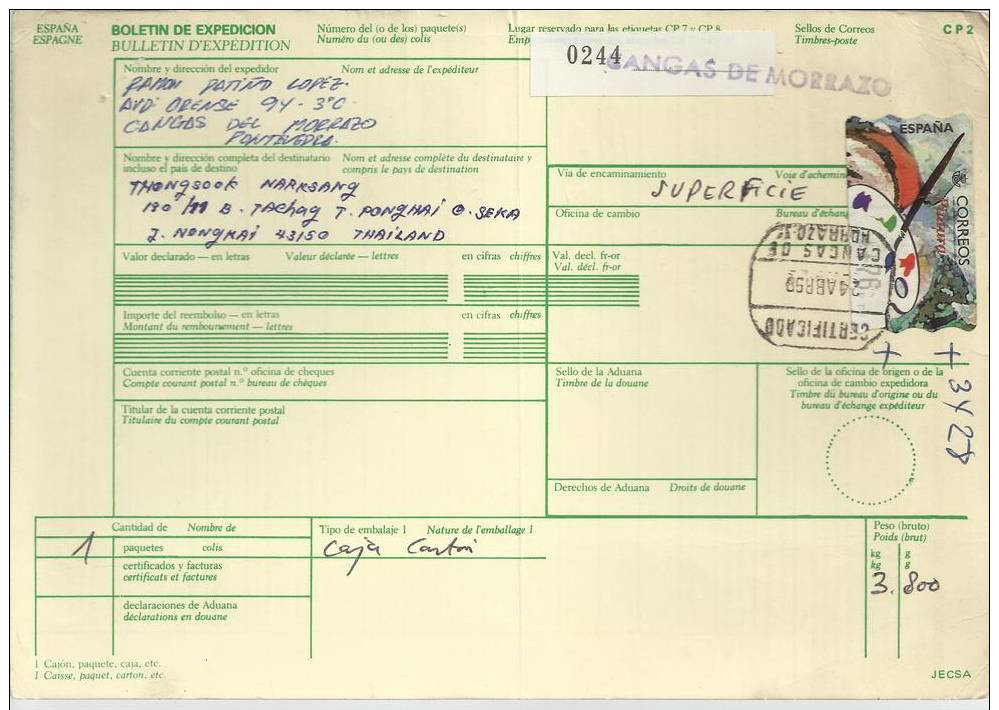 ESPAÑA
ESPAGNE
BOLETIN DE EXPEDICION
BULLETIN D'EXPÉDITION
Número del (o de los) paquete(s)
Numéro du (ou des) colis
Lugar reservado para las etiquetas CP 7 y CP 8
Emp
Sellos de Correos
Timbres-poste
CP2
0244
CANGAS DE MORRAZO
Nombre y dirección del expedidor Nom et adresse de l'expéditeur
RAMON PATIÑO LOPEZ.
AVD. ORENSE 94 - 3º C.
CANGAS DEL MORRAZO
PONTEVEDRA.
Nombre y dirección completa del destinatario Nom et adresse complète du destinataire y
incluso el país de destino compris le pays de destination
THONGSOOK NARKSANG
190/11 B. TACHAG T. PONGHAI O. SEKA
J. NONGKAI 43150 THAILAND
Vía de encaminamiento Voie d'achemin
SUPERFICIE
Oficina de cambio Bureau d'échang
ESPAÑA
CORREOS
CANGAS DE
MORRAZO
24ABR99
CERTIFICADO
Valor declarado — en letras Valeur déclarée — lettres en cifras chiffres
Val. decl. fr-or
Val. décl. fr-or
Importe del reembolso — en letras en cifras chiffres
Montant du remboursement — lettres
+ +3428
Cuenta corriente postal n.º oficina de cheques
Compte courant postal n.º bureau de chèques
Titular de la cuenta corriente postal
Titulaire du compte courant postal
Sello de la Aduana
Timbre de la douane
Sello de la oficina de origen o de la
oficina de cambio expedidora
Timbre du bureau d'origine ou du
bureau d'échange expéditeur
Derechos de Aduana Droits de douane
Cantidad de Nombre de
1 paquetes colis
certificados y facturas
certificats et factures
declaraciones de Aduana
déclarations en douane
Tipo de embalaje 1 Nature de l'emballage 1
Caja Cartón
Peso (bruto)
Poids (brut)
kg g
kg g
3.800
1 Cajón, paquete, caja, etc.
1 Caisse, paquet, carton, etc.
JECSA